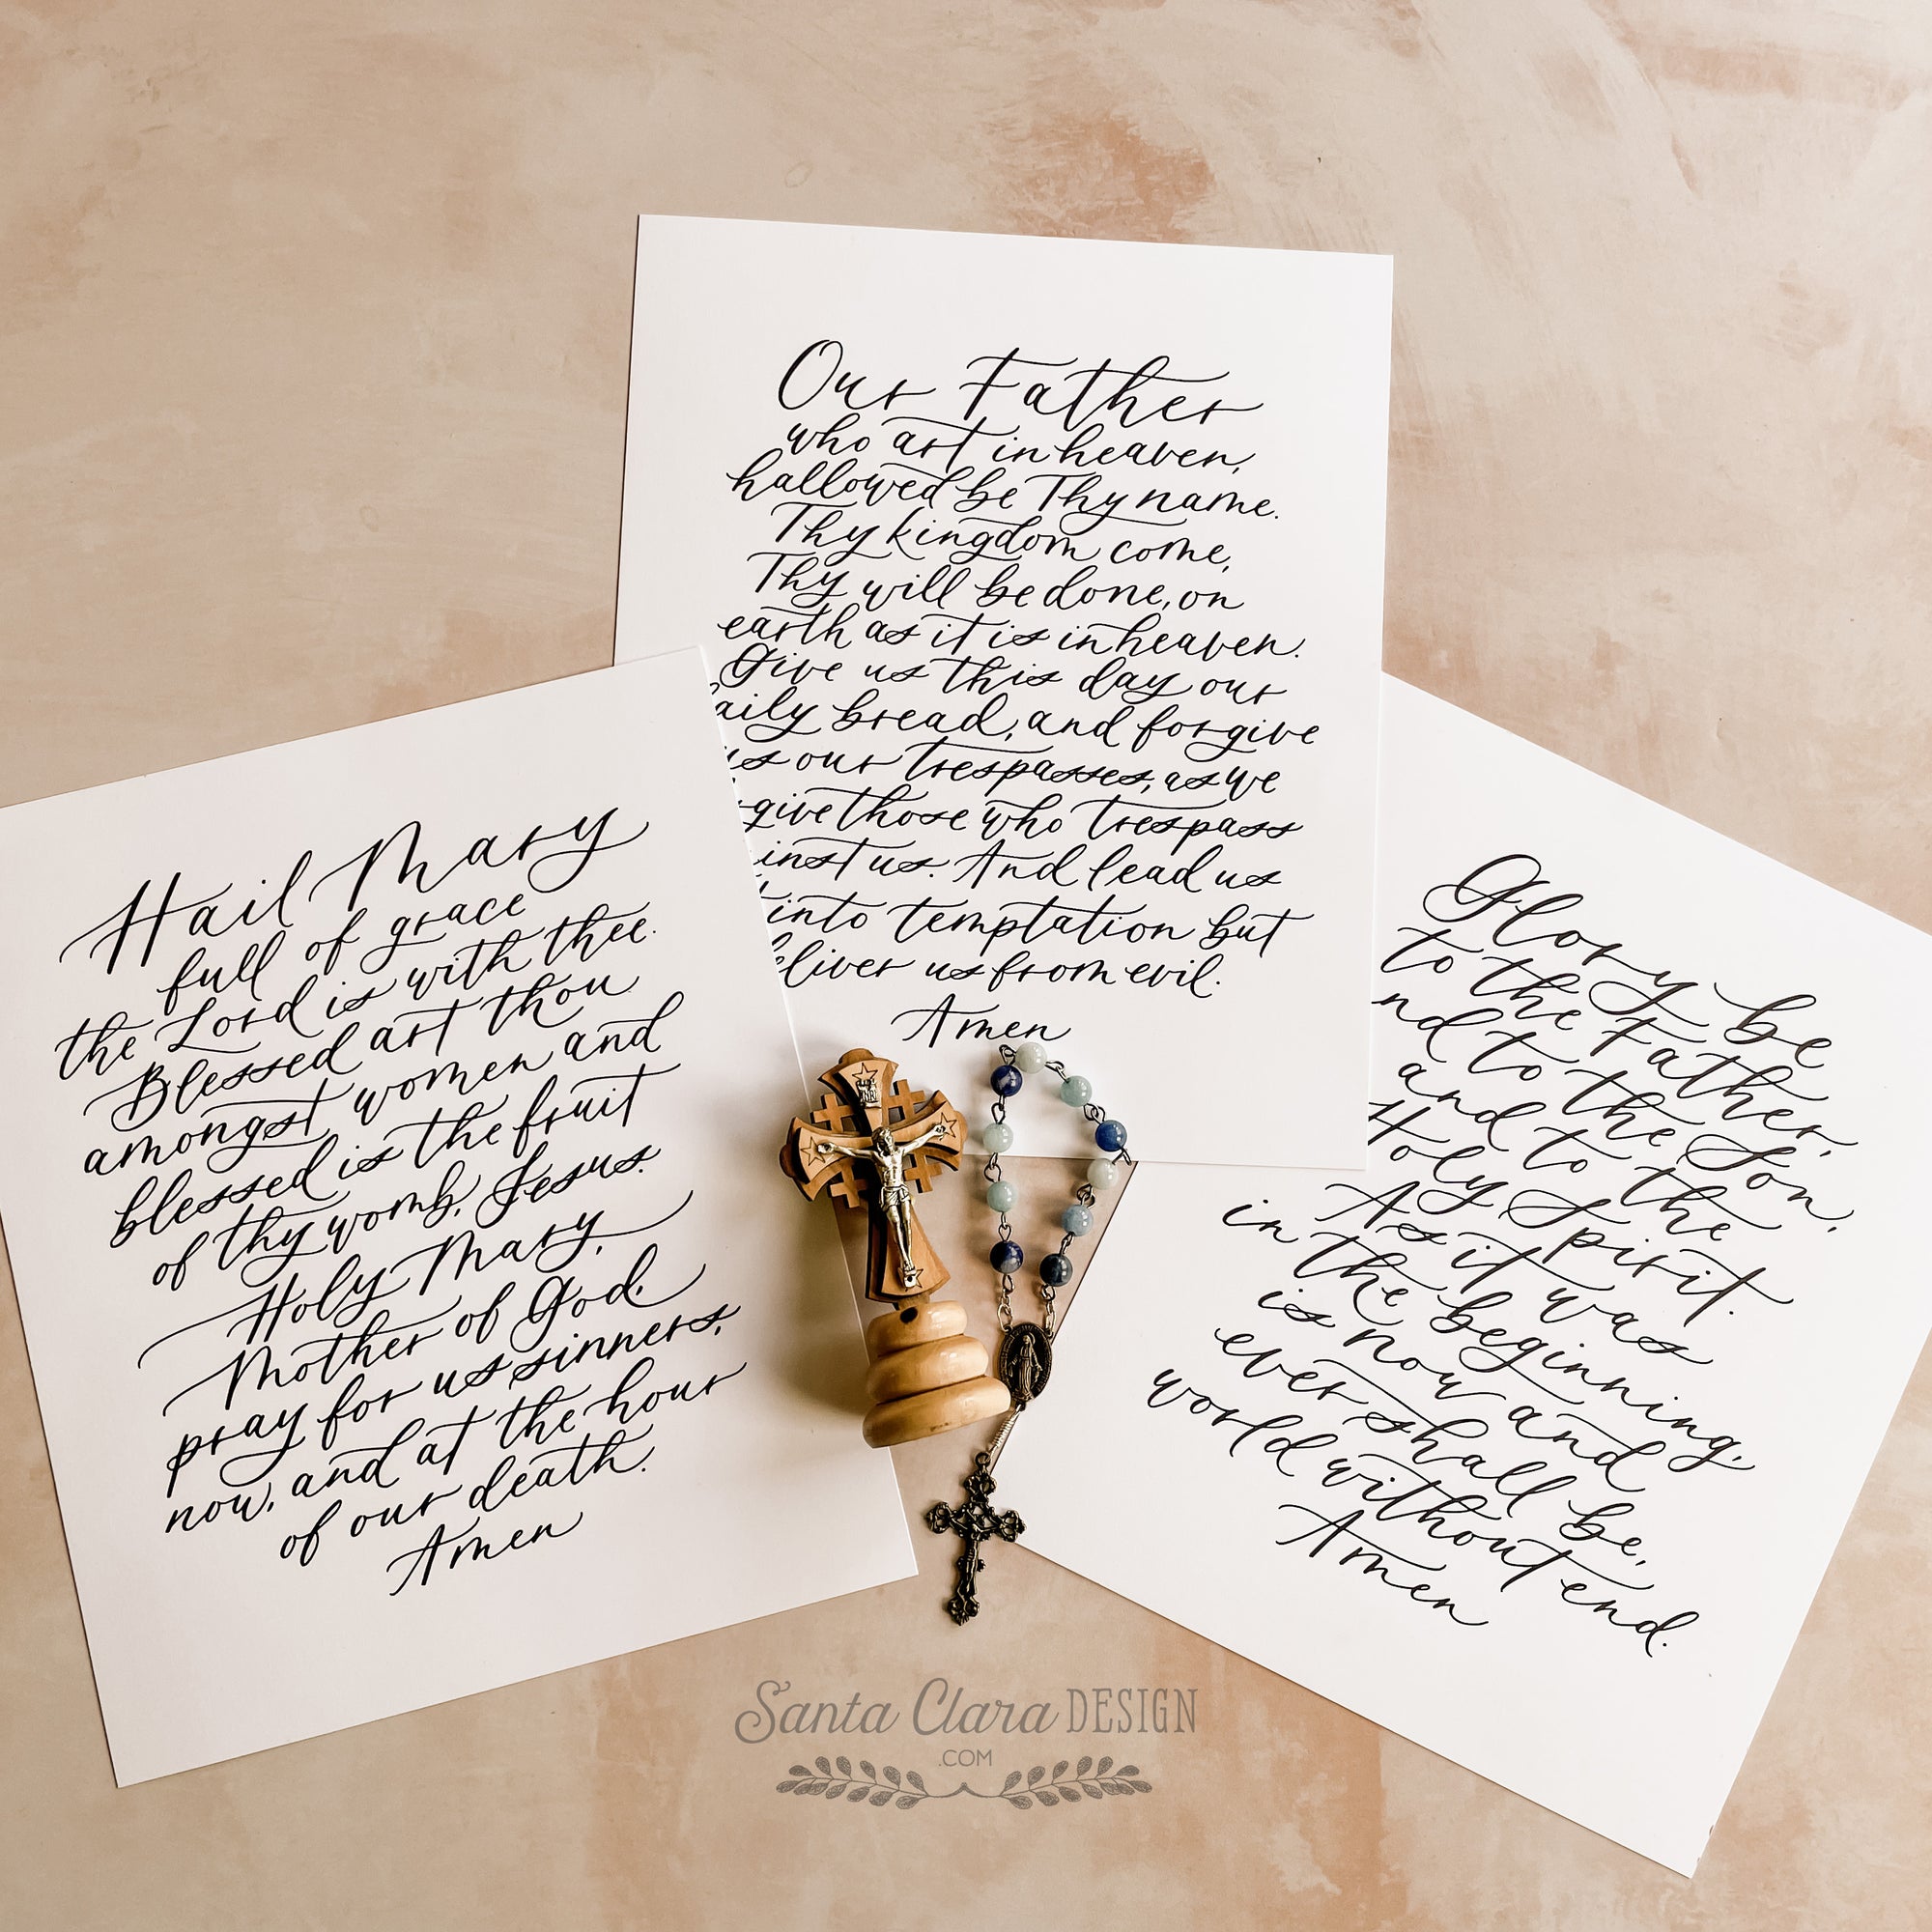 Our Father
who art in heaven,
hallowed be Thy name.
Thy kingdom come,
Thy will be done, on
earth as it is in heaven.
Give us this day our
aily bread, and forgive
us our trespasses, as we
give those who trespass
inst us. And lead us
into temptation but
eliver us from evil.
Amen
Hail Mary
full of grace
the Lord is with thee.
Blessed art thou
amongst women and
blessed is the fruit
of thy womb, Jesus.
Holy Mary,
Mother of God,
pray for us sinners,
now, and at the hour
of our death.
Amen
Glory be
to the Father,
nd to the Son,
and to the
Holy Spirit.
As it was
in the beginning,
is now and
ever shall be,
world without end.
Amen
Santa Clara DESIGN
.COM